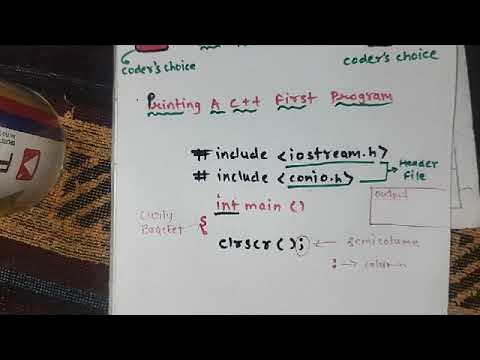 coder's choice
coder's choice
Printing A C++ First Program
# include <iostream.h>
# include <conio.h>
Header
File
int main ()
output
Curly
Bracket
{
clrscr();
semicolumn
: → column